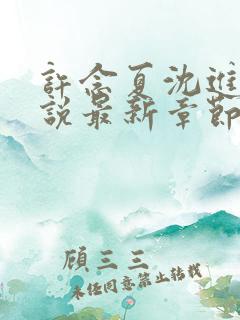 許念夏沈進
說最新章節
顧三三
未經同意禁止轉載